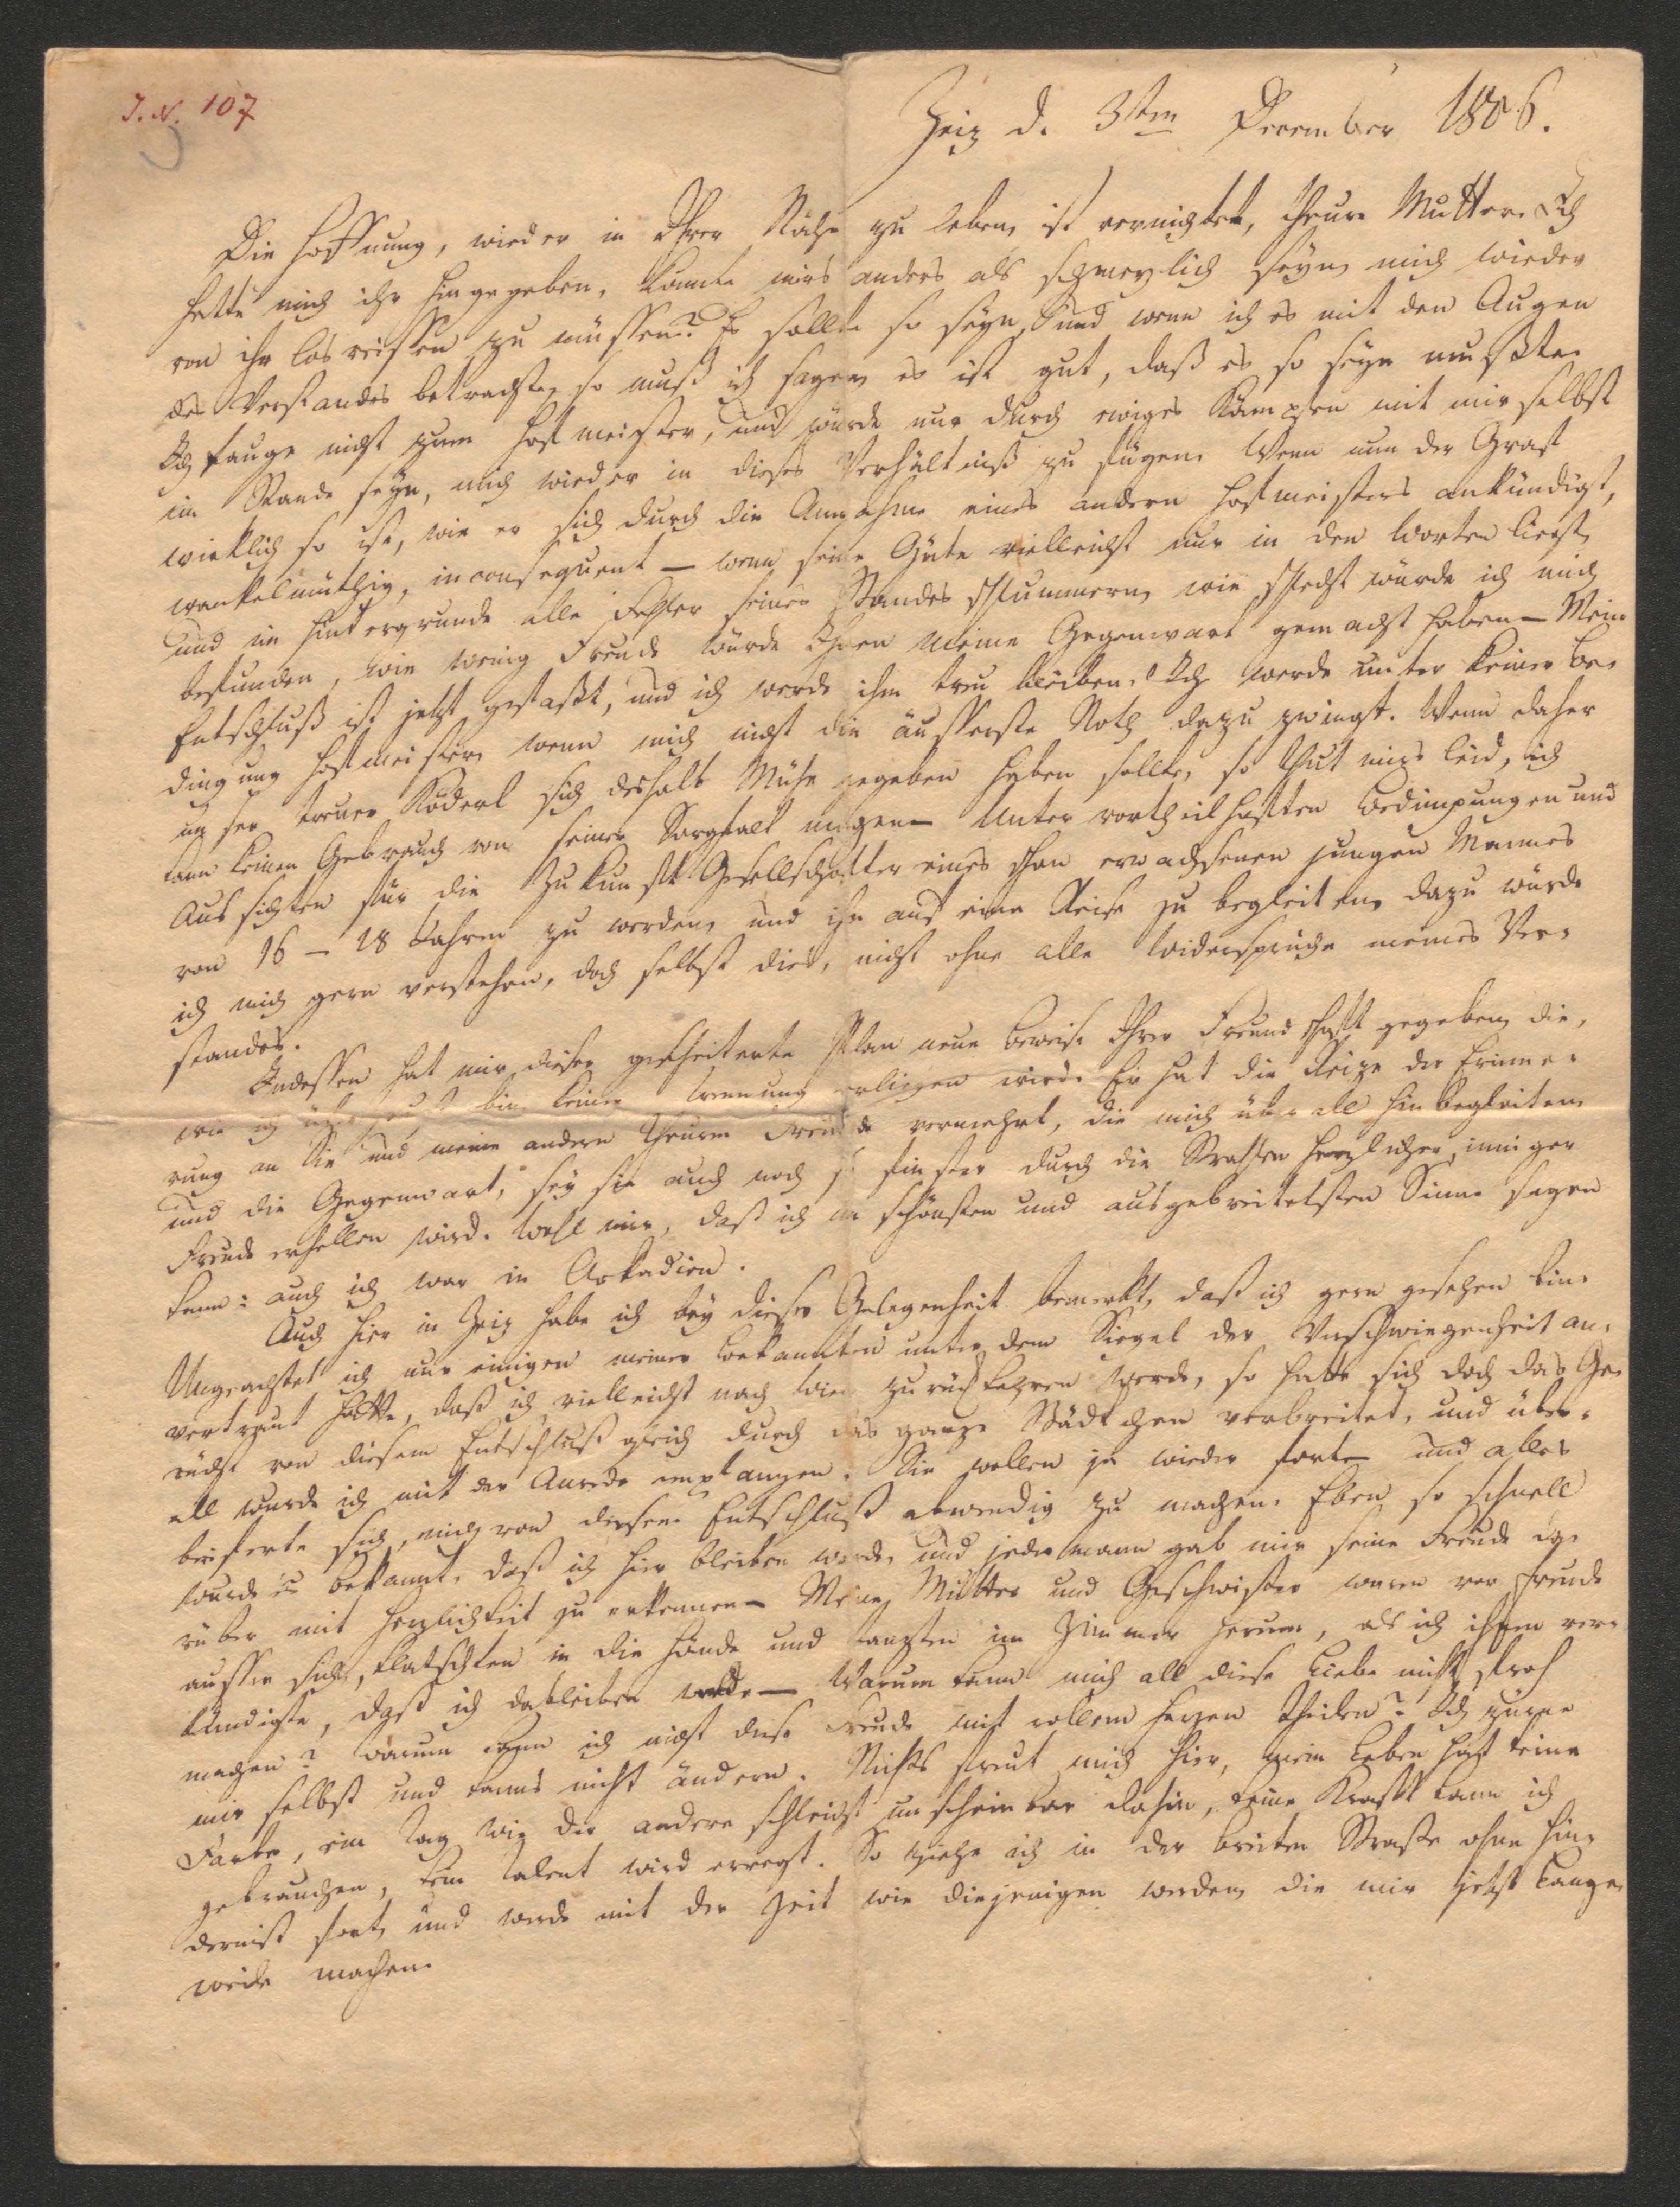 J. N. 107
Zeiz d. 3ten December 1806.
Die Hoffnung, wieder in Ihrer Nähe zu leben, ist vernichtet, theure Mutter. Ich
hatte mich ihr hingegeben, konnte mirs anders als schmerzlich seyn, mich wieder
von ihr losreissen zu müssen? Es sollte so seyn, und wenn ich es mit den Augen
des Verstandes betrachte, so muß ich sagen, es ist gut, daß es so seyn mußte.
Ich tauge nicht zum Hofmeister, und würde nur durch ewiges Kämpfen mit mir selbst
im Stande seyn, mich wieder in dieses Verhältniß zu fügen. Wenn nun der Graf
wirklich so ist, wie er sich durch die Annahme eines andern Hofmeisters ankündigt,
wankelmüthig, inconsequent – wenn seine Güte vielleicht nur in den Worten liegt,
und im Hintergrunde alle Fehler seines Standes schlummern, wie schlecht würde ich mich
befunden, wie wenig Freude würde Ihnen meine Gegenwart gemacht haben – Mein
Entschluß ist jetzt gefaßt, und ich werde ihm treu bleiben. Ich werde unter keiner Be-
dingung Hofmeister, wenn mich nicht die äusserste Noth dazu zwingt. Wenn daher
unser treuer Köderl sich deshalb Mühe gegeben haben sollte, so thut mirs leid, ich
kann keinen Gebrauch von seiner Sorgfalt machen – Unter vortheilhaften Bedingungen und
Aussichten für die Zukunft Gesellschafter eines schon erwachsenen jungen Mannes
von 16 – 18 Jahren zu werden, und ihn auf einer Reise zu begleiten, dazu würde
ich mich gern verstehen, doch selbst dies, nicht ohne alle Widersprüche meines Ver-
standes.
Indessen hat mir dieser gescheiterte Plan neue Beweise Ihrer Freundschaft gegeben, die,
wie ich überzeugt bin, keiner Trennung erliegen wird. Er hat die Reize der Erinne-
rung an Sie und meine andern theuren Freunde vermehrt, die mich überall hinbegleiten,
und die Gegenwart, sey sie auch noch so finster durch die Strahlen herzlicher, inniger
Freude erhellen wird. Wohl mir, daß ich im schönsten und ausgebreitetsten Sinne sagen
kann: auch ich war in Arkadien.
Auch hier in Zeiz habe ich bey dieser Gelegenheit bemerkt, daß ich gern gesehen bin.
Ungeachtet ich nur einigen meiner Bekannten unter dem Siegel der Verschwiegenheit an-
vertraut hatte, daß ich vielleicht nach Wien zurückkehren werde, so hatte sich doch das Ge-
rücht von diesem Entschluß gleich durch das ganze Städtchen verbreitet, und über-
all wurde ich mit der Anrede empfangen. Sie wollen ja wieder fort – und alles
beeiferte sich, mich von diesem Entschluß abwendig zu machen. Eben so schnell
wurde es bekannt, daß ich hier bleiben werde, und jedermann gab mir seine Freude da-
rüber mit Herzlichkeit zu erkennen – Meine Mutter und Geschwister waren vor Freude
ausser sich, klatschten in die Hände und tanzten im Zimmer herum, als ich ihnen ver-
kündigte, daß ich dableiben werde – Warum kann mich all diese Liebe nicht froh
machen? Warum kann ich nicht diese Freude mit vollem Herzen theilen? Ich zürne
mir selbst und kanns nicht ändern. Nichts freut mich hier, mein Leben hat keine
Farbe, ein Tag wie der andere schleicht unscheinbar dahin, keine Kraft kann ich
gebrauchen, kein Talent wird erregt. So ziehe ich in der breiten Strasse ohne Hin-
derniß fort, und werde mit der Zeit wie diejenigen werden, die mir jetzt Lange-
weile machen.